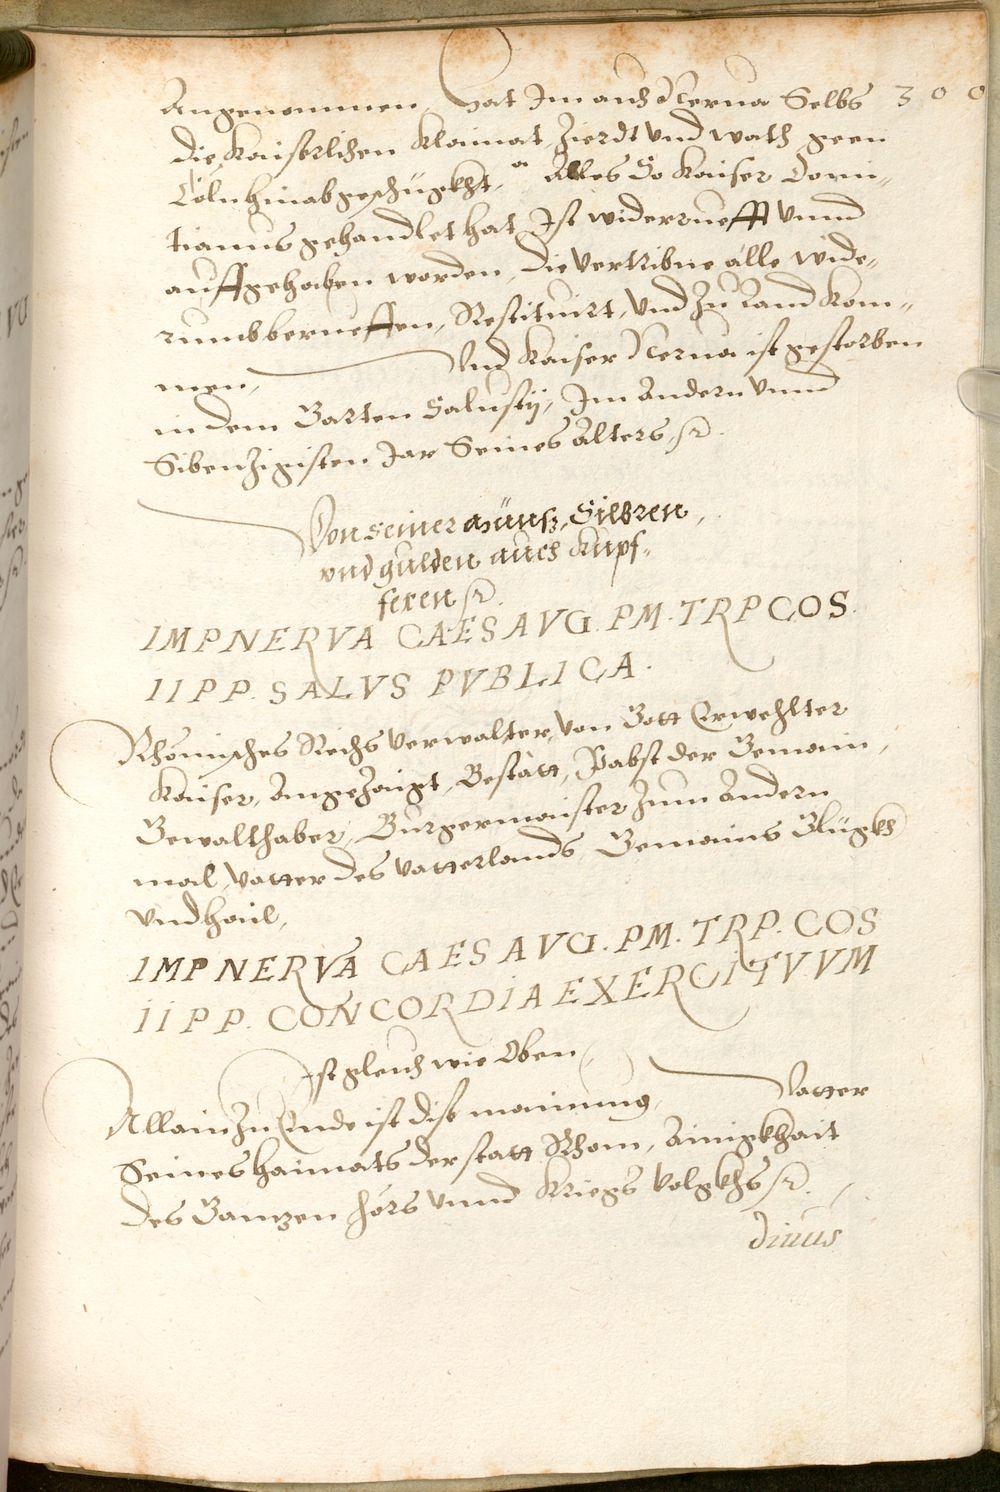 300
Angenommen, Hat Im auch Nerua Selbs
die Kaiserlichen Klainat Zierdt vnd wath geen
Cöln hinab geschügkht, Alles So Kaiser Domi„
tianus gehandlet hat Ist widerruefft vnnd
auffgehoben worden, die vertribne alle wide„
rumb berueffen, Restituirt, vnd zu Land kom„
men, Vnd Kaiser Nerua ist gestorben
in dem Garten Salustij, Im Andern vnnd
Sibenzigisten Jar Seines Alters, etc.
Von seiner Münsz, Silbren,
vnd gulden auch kupf„
feren etc.
IMP NERVA CAES AVG. P M. TR P COS.
II P P. SALVS PVBLICA.
Rhömisches Reichs Verwalter, von Gott Erwehlter
Kaiser, Angezaigt, Bestätt, Pabst der Gemain,
Gewalthaber, Burgermaister zum Andern
mal, Vatter des Vatterlands Gemains Glügkh
vnd hail,
IMP NERVA CAES AVG. P M. TR P. COS
II P P. CONCORDIA EXERCITVVM
Ist gleich wie Oben,
Allain zu Ende ist dise mainung, Vatter
Seines haimats der statt Rhom, Ainigkhait
des Gantzen hörs vnnd Kriegs Volgkhs etc.
diuus